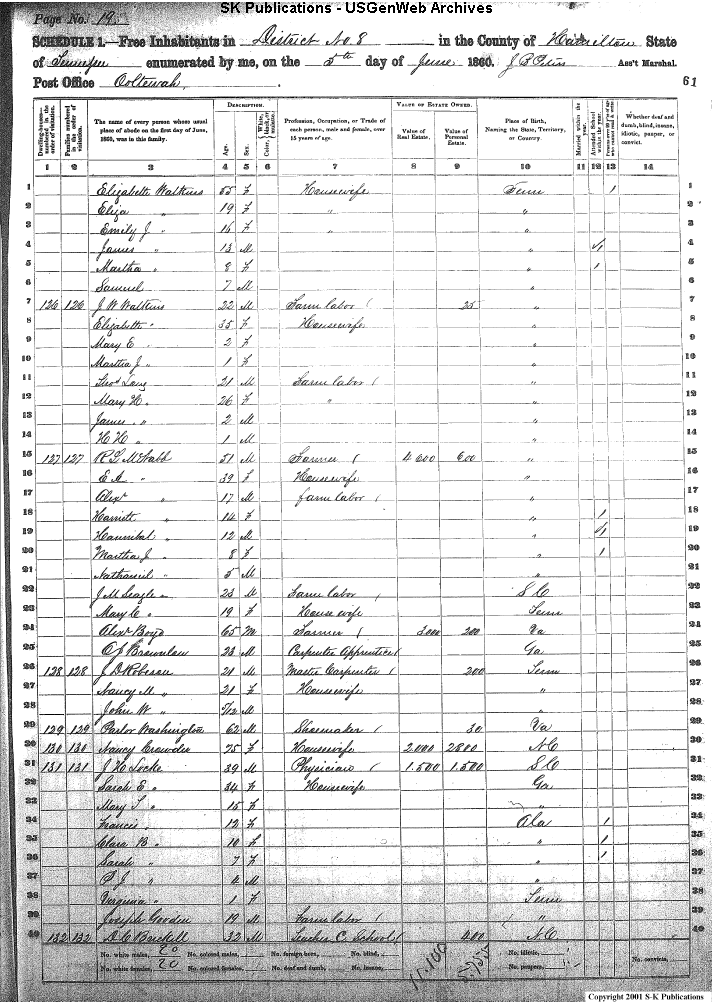 SK Publications - USGenWeb Archives
Page No. 19.
SCHEDULE 1.—Free Inhabitants in District No. 8 in the County of Hamilton State
of Tennessee enumerated by me, on the 5th day of June 1860. Ass't Marshal.
Post Office Ooltewah.
61
DESCRIPTION. VALUE OF ESTATE OWNED.
Dwelling-houses—numbered in the order of visitation. Families numbered in the order of visitation. The name of every person whose usual place of abode on the first day of June, 1860, was in this family. Age. Sex. Color, White, black, or mulatto. Profession, Occupation, or Trade of each person, male and female, over 15 years of age. Value of Real Estate. Value of Personal Estate. Place of Birth, Naming the State, Territory, or Country. Married within the year. Attended School within the year. Whether deaf and dumb, blind, insane, idiotic, pauper, or convict.
1 2 3 4 5 6 7 8 9 10 11 12 13 14
1 Elizabeth Watkins 55 F Housewife Tenn 1 1
2 Eliza " 19 F " " 2
3 Emily J " 16 F " " 3
4 James " 13 M " 1 4
5 Martha " 8 F " 1 5
6 Samuel 7 M " 6
7 126 126 J W Watkins 22 M Farm labor 25 " 7
8 Elizabeth " 35 F Housewife " 8
9 Mary E " 2 F " 9
10 Martha J " 1 F " 10
11 Thos Lang 21 M Farm labor " 11
12 Mary H " 26 F " " 12
13 James " 2 M " 13
14 H H " 1 M " 14
15 127 127 R G McNabb 51 M Farmer 4600 600 " 15
16 E A " 39 F Housewife " 16
17 Alexr " 17 M farm labor " 17
18 Harriett " 14 F " 1 18
19 Hannibal " 12 M " 1 19
20 Martha J " 8 F " 1 20
21 Nathaniel " 5 M " 21
22 J M Seagle 23 M Farm labor S C 22
23 Mary C " 19 F House wife Tenn 23
24 Alexr Boyd 65 M Farmer 3000 200 Va 24
25 Brownlow 23 M Carpenter Apprentice Ga 25
26 128 128 J D Roberson 21 M Master Carpenter 200 Tenn 26
27 Nancy M " 21 F Housewife " 27
28 John W " M " 28
29 129 129 Pastor Washington 62 M Shoemaker 30 Va 29
30 130 130 Nancy Crowder 75 F Housewife 2000 2800 N C 30
31 131 131 J H Locke 39 M Physician 1.500 1.500 S C 31
32 Sarah E " 34 F Housewife Ga 32
33 Mary T " 15 F " 33
34 Francis " 12 F Ala 1 34
35 Clara B " 10 F " 1 35
36 Sarah " 7 F " 1 36
37 P J " 4 M " 37
38 Virginia " 1 F Tenn 38
39 Joseph Gorden 19 M Farm labor " 39
40 132 132 D C Brickell 32 M Teacher C. School 400 N C 40
No. white males, 20 No. colored males, No. foreign born, No. blind, 11.100 No. idiotic, No. convicts,
No. white females, 20 No. colored females, No. deaf and dumb, No. insane, No. paupers,
Copyright 2001 S-K Publications